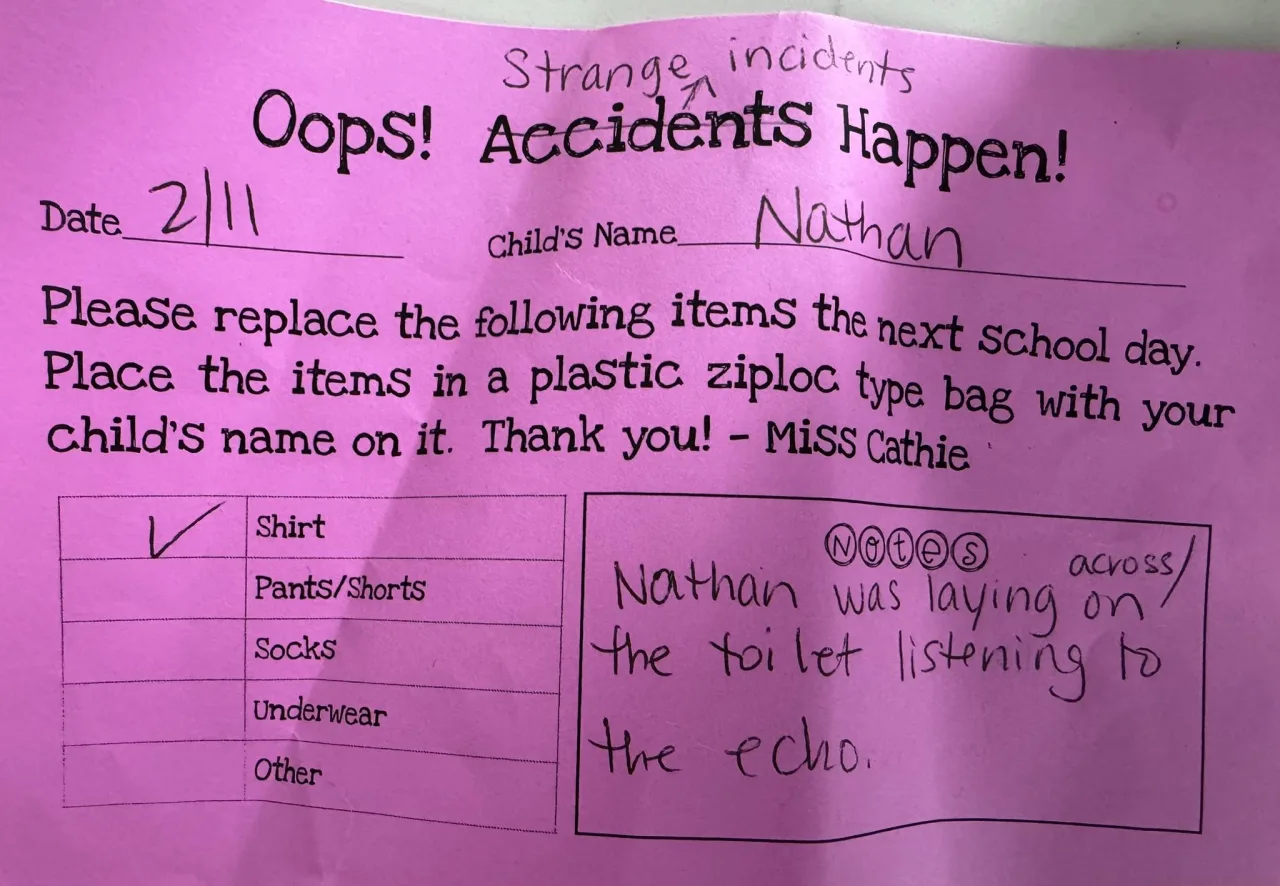 Strange incidents
Oops! Accidents Happen!
Date 2/11 Child's Name Nathan
Please replace the following items the next school day.
Place the items in a plastic ziploc type bag with your
child's name on it. Thank you! - Miss Cathie
✓ Shirt
Pants/Shorts
Socks
Underwear
Other
Notes
across/
Nathan was laying on/
the toilet listening to
the echo.